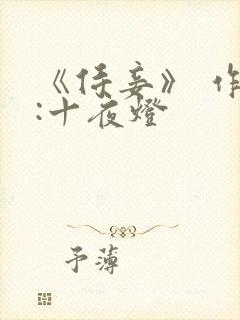 《侍妾》 作
:十夜燈
予薄